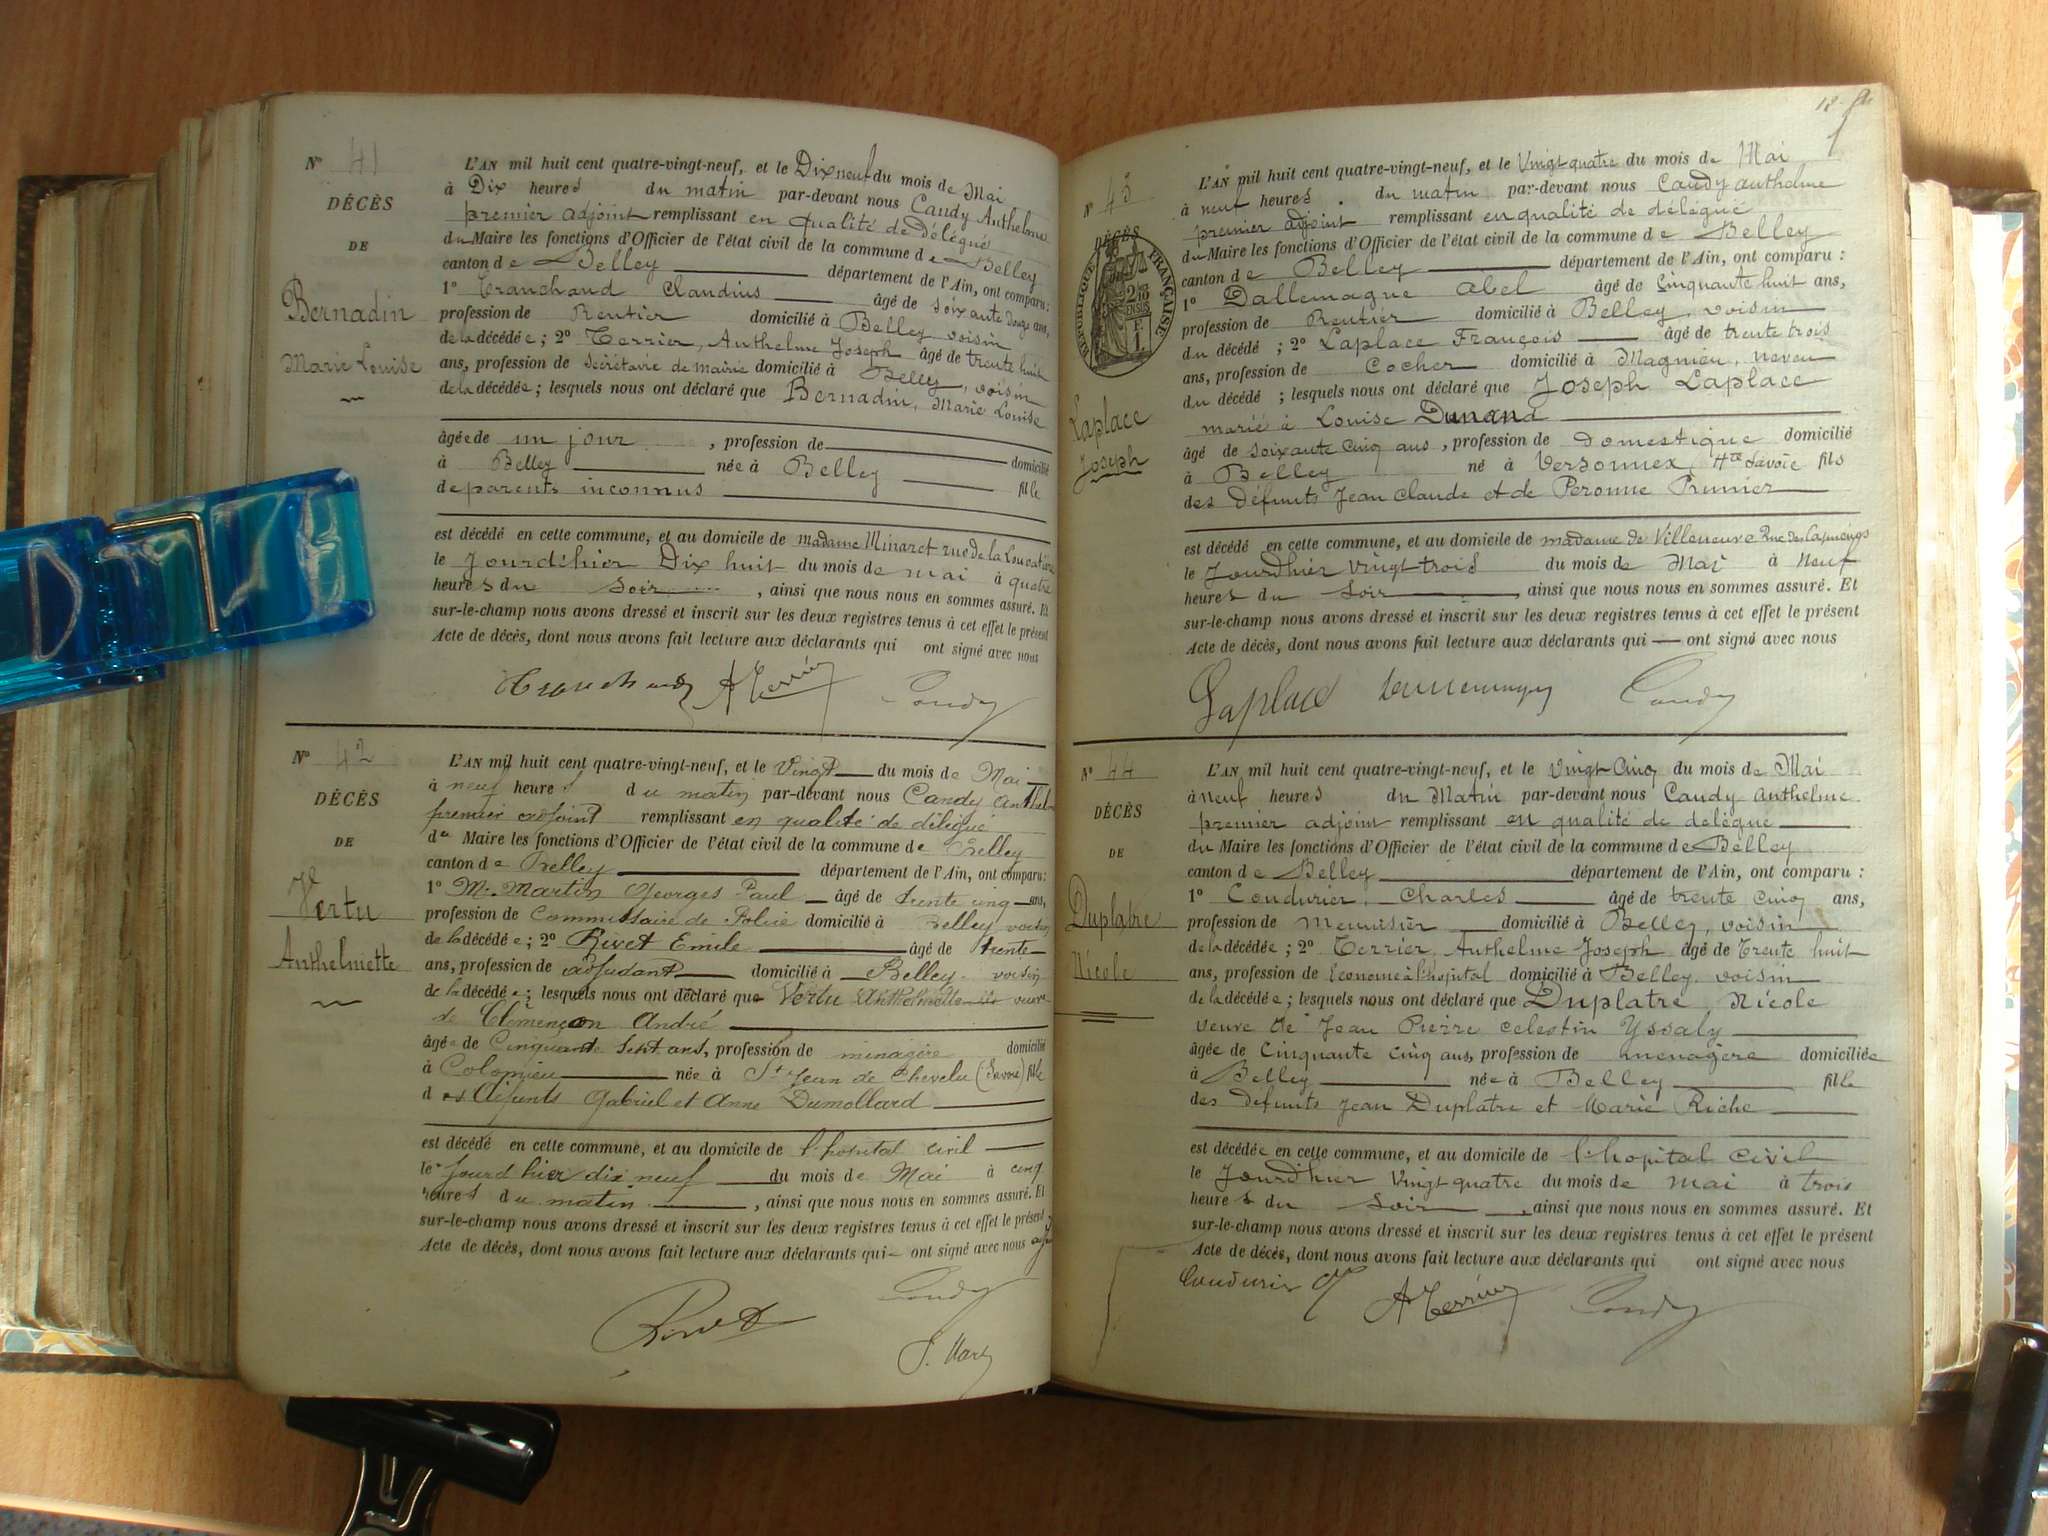 N° 41
DÉCÈS
DE
Bernadin
Marie Louise
L'AN mil huit cent quatre-vingt-neuf, et le Dix neuf du mois de Mai
à Dix heures du matin par-devant nous Candy Anthelme
premier adjoint remplissant en qualité de Délégué
du Maire les fonctions d'Officier de l'état civil de la commune de Belley
canton de Belley département de l'Ain, ont comparu :
1° Tranchand Claudius âgé de soixante douze ans,
profession de Rentier domicilié à Belley voisin
de la décédée ; 2° Terrier, Anthelme Joseph âgé de trente huit
ans, profession de Secrétaire de mairie domicilié à Belley, voisin
de la décédée ; lesquels nous ont déclaré que Bernadin, Marie Louise
âgée de un jour , profession de domicilié
à Belley née à Belley fille
de parents inconnus
est décédé en cette commune, et au domicile de madame Minaret rue de la
le Jourd'hier Dix huit du mois de mai à quatre
heures du Soir , ainsi que nous nous en sommes assuré. Et
sur-le-champ nous avons dressé et inscrit sur les deux registres tenus à cet effet le présent
Acte de décès, dont nous avons fait lecture aux déclarants qui ont signé avec nous
Tranchand ATerrier Candy
N° 42
DÉCÈS
DE
Vertu
Anthelmette
L'AN mil huit cent quatre-vingt-neuf, et le Vingt du mois de Mai
à neuf heures du matin par-devant nous Candy Anthelme
premier adjoint remplissant en qualité de délégué
du Maire les fonctions d'Officier de l'état civil de la commune de Belley
canton de Belley département de l'Ain, ont comparu :
1° Mr Martin Georges Paul âgé de trente cinq ans,
profession de Commissaire de Police domicilié à Belley voisin
de la décédée ; 2° Rivet Emile âgé de trente
ans, profession de adjudant domicilié à Belley voisin
de la décédée ; lesquels nous ont déclaré que Vertu Anthelmette veuve
de Clémençon André
âgée de Cinquante Sept ans, profession de ménagère domicilié
à Colomieu née à St Jean de Chevelu (Savoie) fille
des défunts Gabriel et Anne Dumollard
est décédé en cette commune, et au domicile de l'hopital civil
le Jourd'hier dix neuf du mois de Mai à cinq
heures du matin , ainsi que nous nous en sommes assuré. Et
sur-le-champ nous avons dressé et inscrit sur les deux registres tenus à cet effet le présent
Acte de décès, dont nous avons fait lecture aux déclarants qui ont signé avec nous
Candy
Rivet
N° 43
DÉCÈS
RÉPUBLIQUE FRANÇAISE
Laplace
Joseph
L'AN mil huit cent quatre-vingt-neuf, et le Vingt quatre du mois de Mai
à neuf heures du matin par-devant nous Candy anthelme
premier adjoint remplissant en qualité de délégué
du Maire les fonctions d'Officier de l'état civil de la commune de Belley
canton de Belley département de l'Ain, ont comparu :
1° Dallemagne Abel âgé de Cinquante huit ans,
profession de Rentier domicilié à Belley, voisin
du décédé ; 2° Laplace François âgé de trente trois
ans, profession de Cocher domicilié à Magnieu, neveu
du décédé ; lesquels nous ont déclaré que Joseph Laplace
marié à Louise Dunand
âgé de soixante cinq ans , profession de Domestique domicilié
à Belley né à Versonnex, Hte Savoie fils
des Défunts Jean Claude et de Peronne Prunier
est décédé en cette commune, et au domicile de madame de Villeneuve Rue des Capucins
le Jourdhier vingt trois du mois de Mai à Neuf
heures du Soir , ainsi que nous nous en sommes assuré. Et
sur-le-champ nous avons dressé et inscrit sur les deux registres tenus à cet effet le présent
Acte de décès, dont nous avons fait lecture aux déclarants qui ont signé avec nous
Laplace Candy
N° 44
DÉCÈS
DE
Duplatre
Nicole
L'AN mil huit cent quatre-vingt-neuf, et le Vingt Cinq du mois de Mai
à Neuf heures du Matin par-devant nous Candy Anthelme
premier adjoint remplissant en qualité de délégué
du Maire les fonctions d'Officier de l'état civil de la commune de Belley
canton de Belley département de l'Ain, ont comparu :
1° Coudurier, Charles âgé de trente Cinq ans,
profession de Menuisier domicilié à Belley, voisin
de la décédée ; 2° Terrier, Anthelme Joseph âgé de Trente huit
ans, profession de Econome à l'hopital domicilié à Belley voisin
de la décédée ; lesquels nous ont déclaré que Duplatre, Nicole
veuve de Jean Pierre Celestin Yssaly
âgée de Cinquante Cinq ans, profession de ménagère domiciliée
à Belley née à Belley fille
des Défunts Jean Duplatre et Marie Riche
est décédée en cette commune, et au domicile de l'hopital Civil
le Jourdhier Vingt quatre du mois de mai à trois
heures du Soir , ainsi que nous nous en sommes assuré. Et
sur-le-champ nous avons dressé et inscrit sur les deux registres tenus à cet effet le présent
Acte de décès, dont nous avons fait lecture aux déclarants qui ont signé avec nous
Coudurier ATerrier Candy